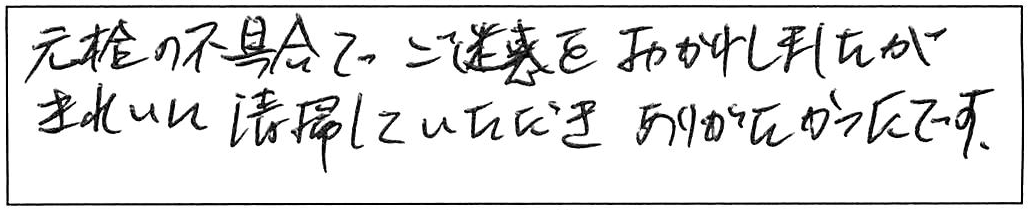 元栓の不具合で ご迷惑を おかけしましたが
きれいに 清掃していただき ありがたかったです。